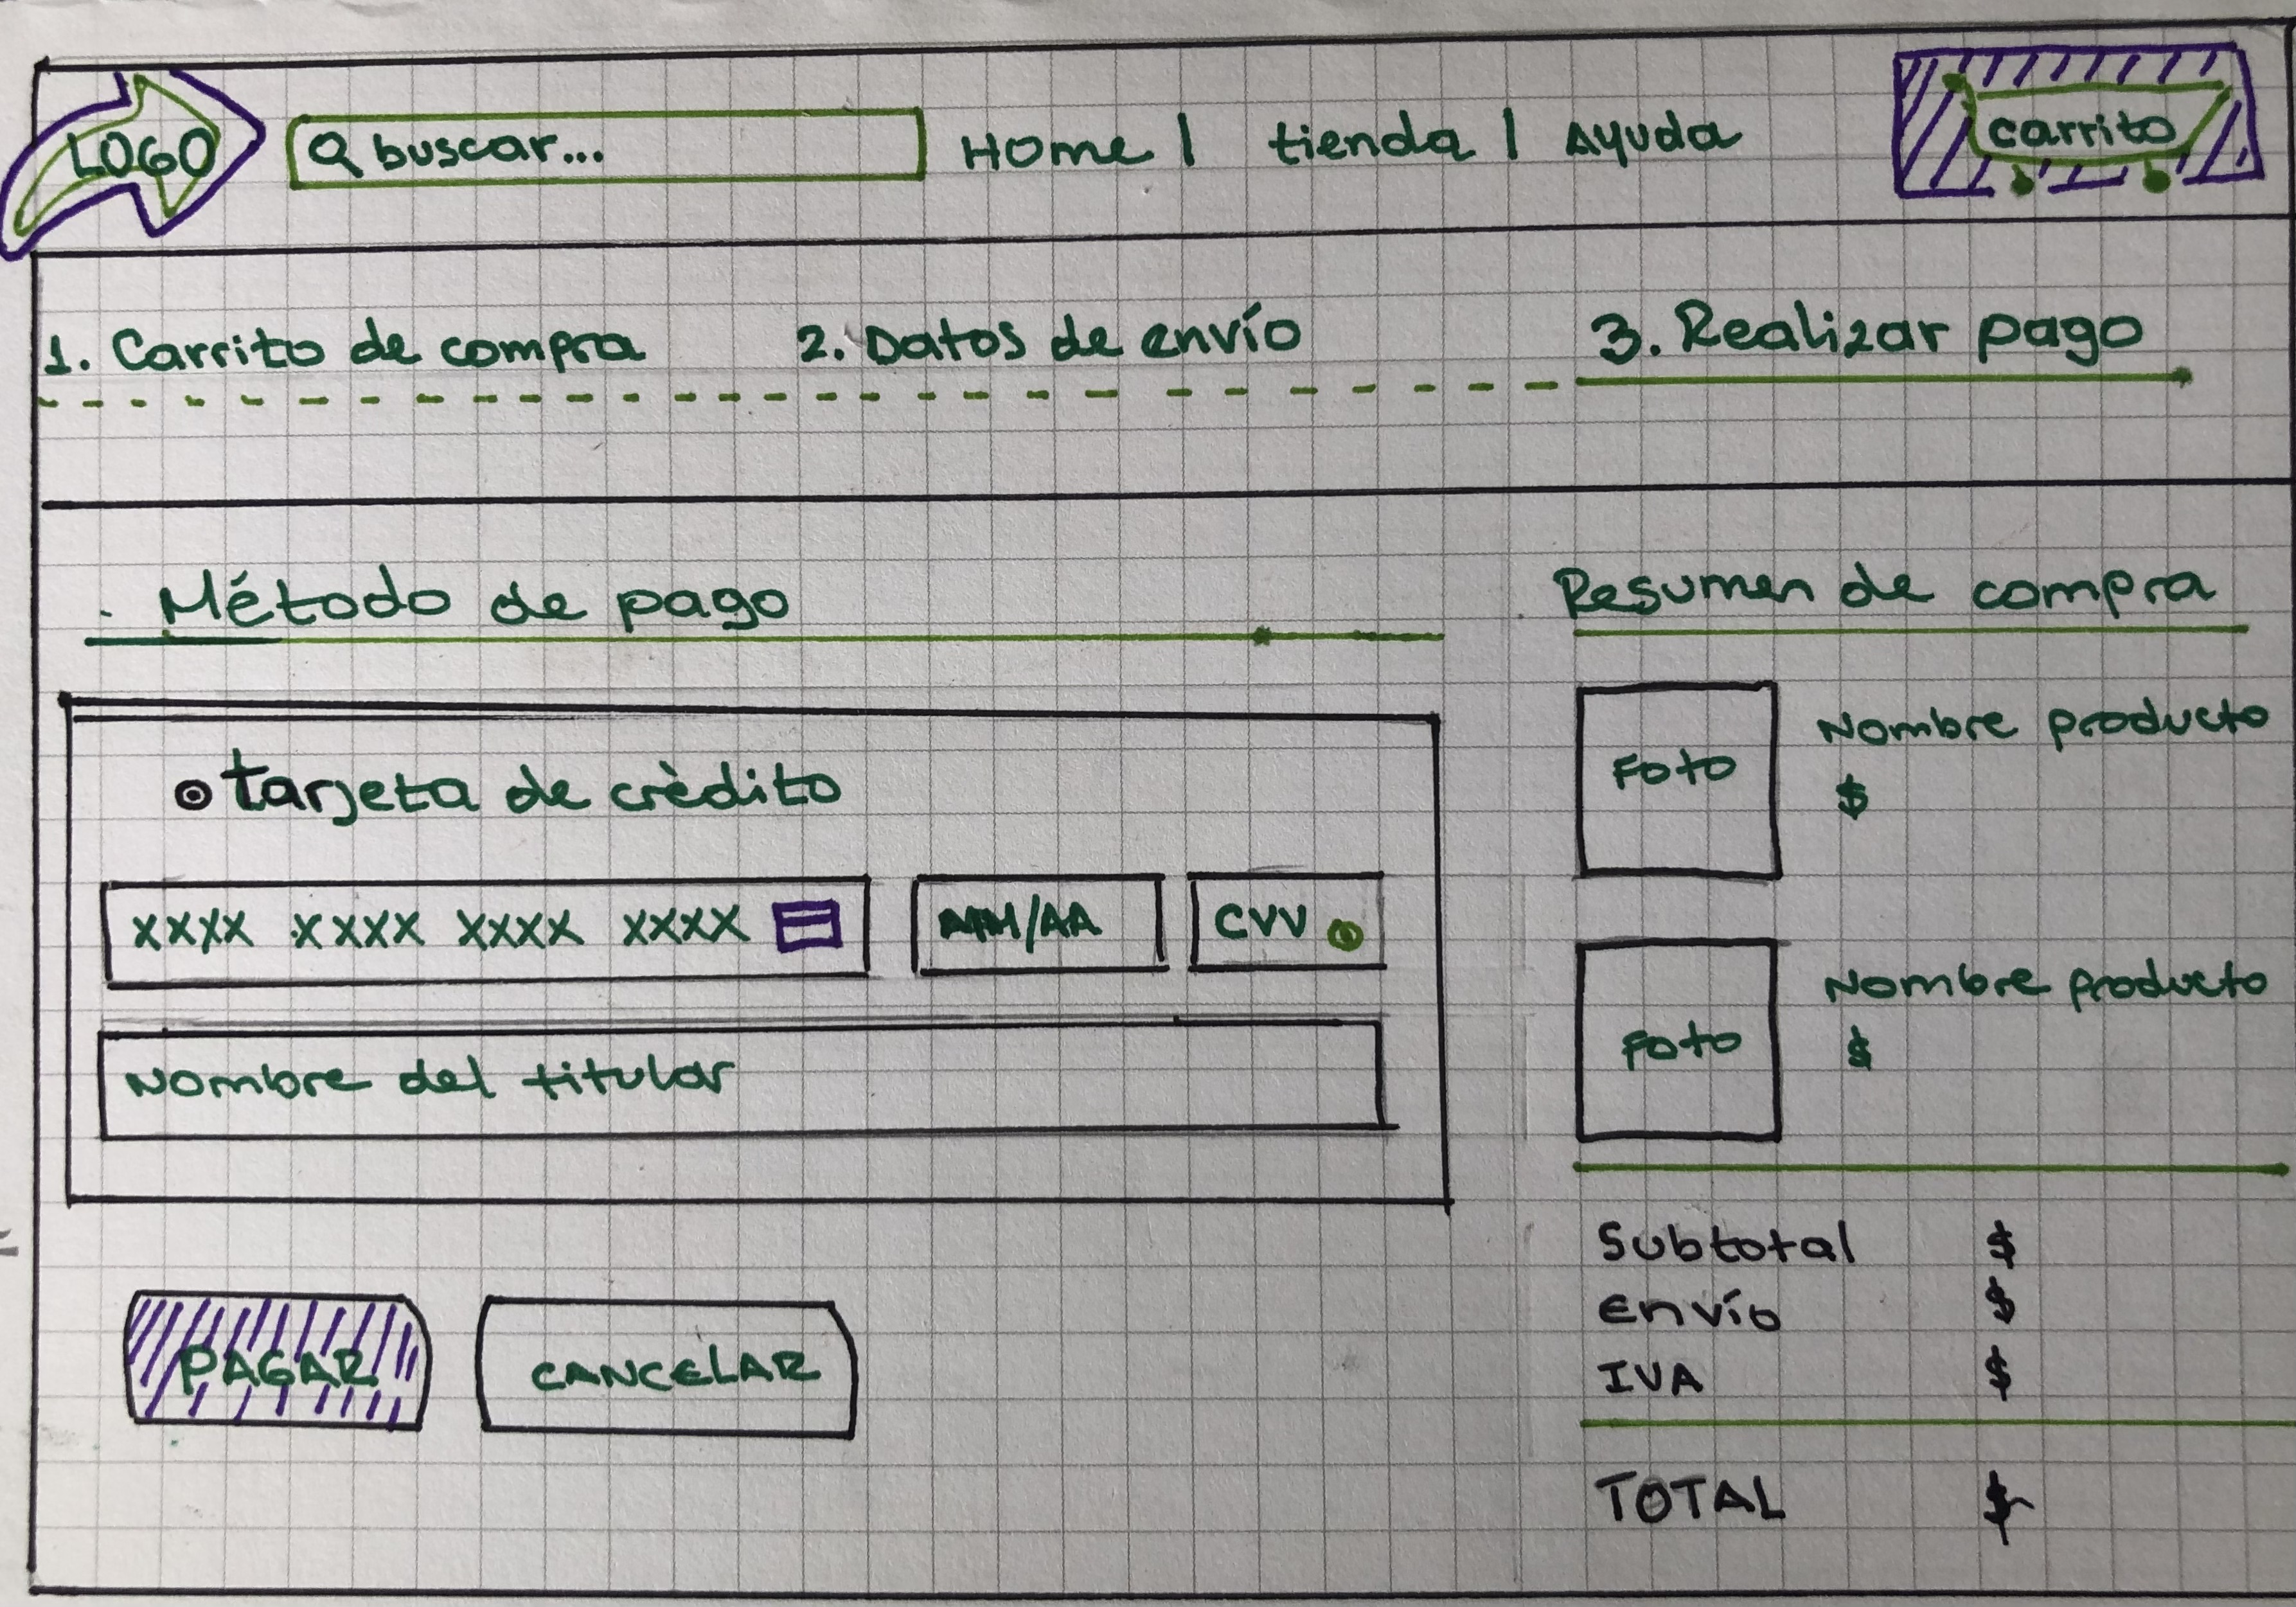 LOGO
buscar...
Home | tienda | Ayuda
carrito
1. Carrito de compra
2. Datos de envío
3. Realizar pago
Método de pago
tarjeta de crèdito
XXXX XXXX XXXX XXXX
MM/AA
CVV
Nombre del titular
PAGAR
CANCELAR
Resumen de compra
Foto
Nombre producto
$
Foto
Nombre producto
$
Subtotal $
Envío $
IVA $
TOTAL $